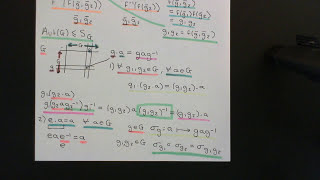 F⁻¹(f(g̅₁g̅₂)) = f(g̅₁)f(g̅₂)
g̅₁g̅₂ g₁g₂ = g₁g₂
g₁g₂ = f(g̅₁g̅₂)
Aut(G) ≤ S_G
G g.a = gag⁻¹
1) ∀ g₁,g₂∈G, ∀a∈G
g₁.(g₂.a) = (g₁g₂).a
g₁(g₂.a)
g₁(g₂ag₂⁻¹)g₁⁻¹ = (g₁g₂)a(g₁g₂)⁻¹ = (g₁g₂).a
2) e.a=a ∀a∈G g∈G σ_g = a ↦ gag⁻¹
eae⁻¹=a
e g₁,g₂∈G σ_g₁ ∘ σ_g₂ = σ_g₁g₂